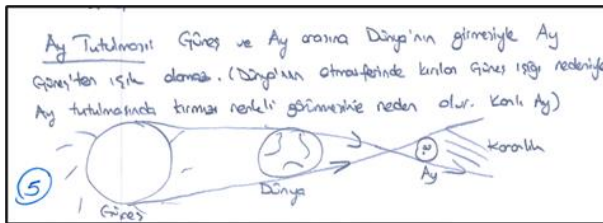 Ay Tutulması: Güneş ve Ay arasına Dünya'nın girmesiyle Ay
Güneş'ten ışık alamaz. (Dünya'nın atmosferinde kırılan Güneş ışığı nedeniyle
Ay tutulmasında kırmızı renkli görünmesine neden olur. Kanlı Ay)
Karanlık
Ay
Dünya
5
Güneş